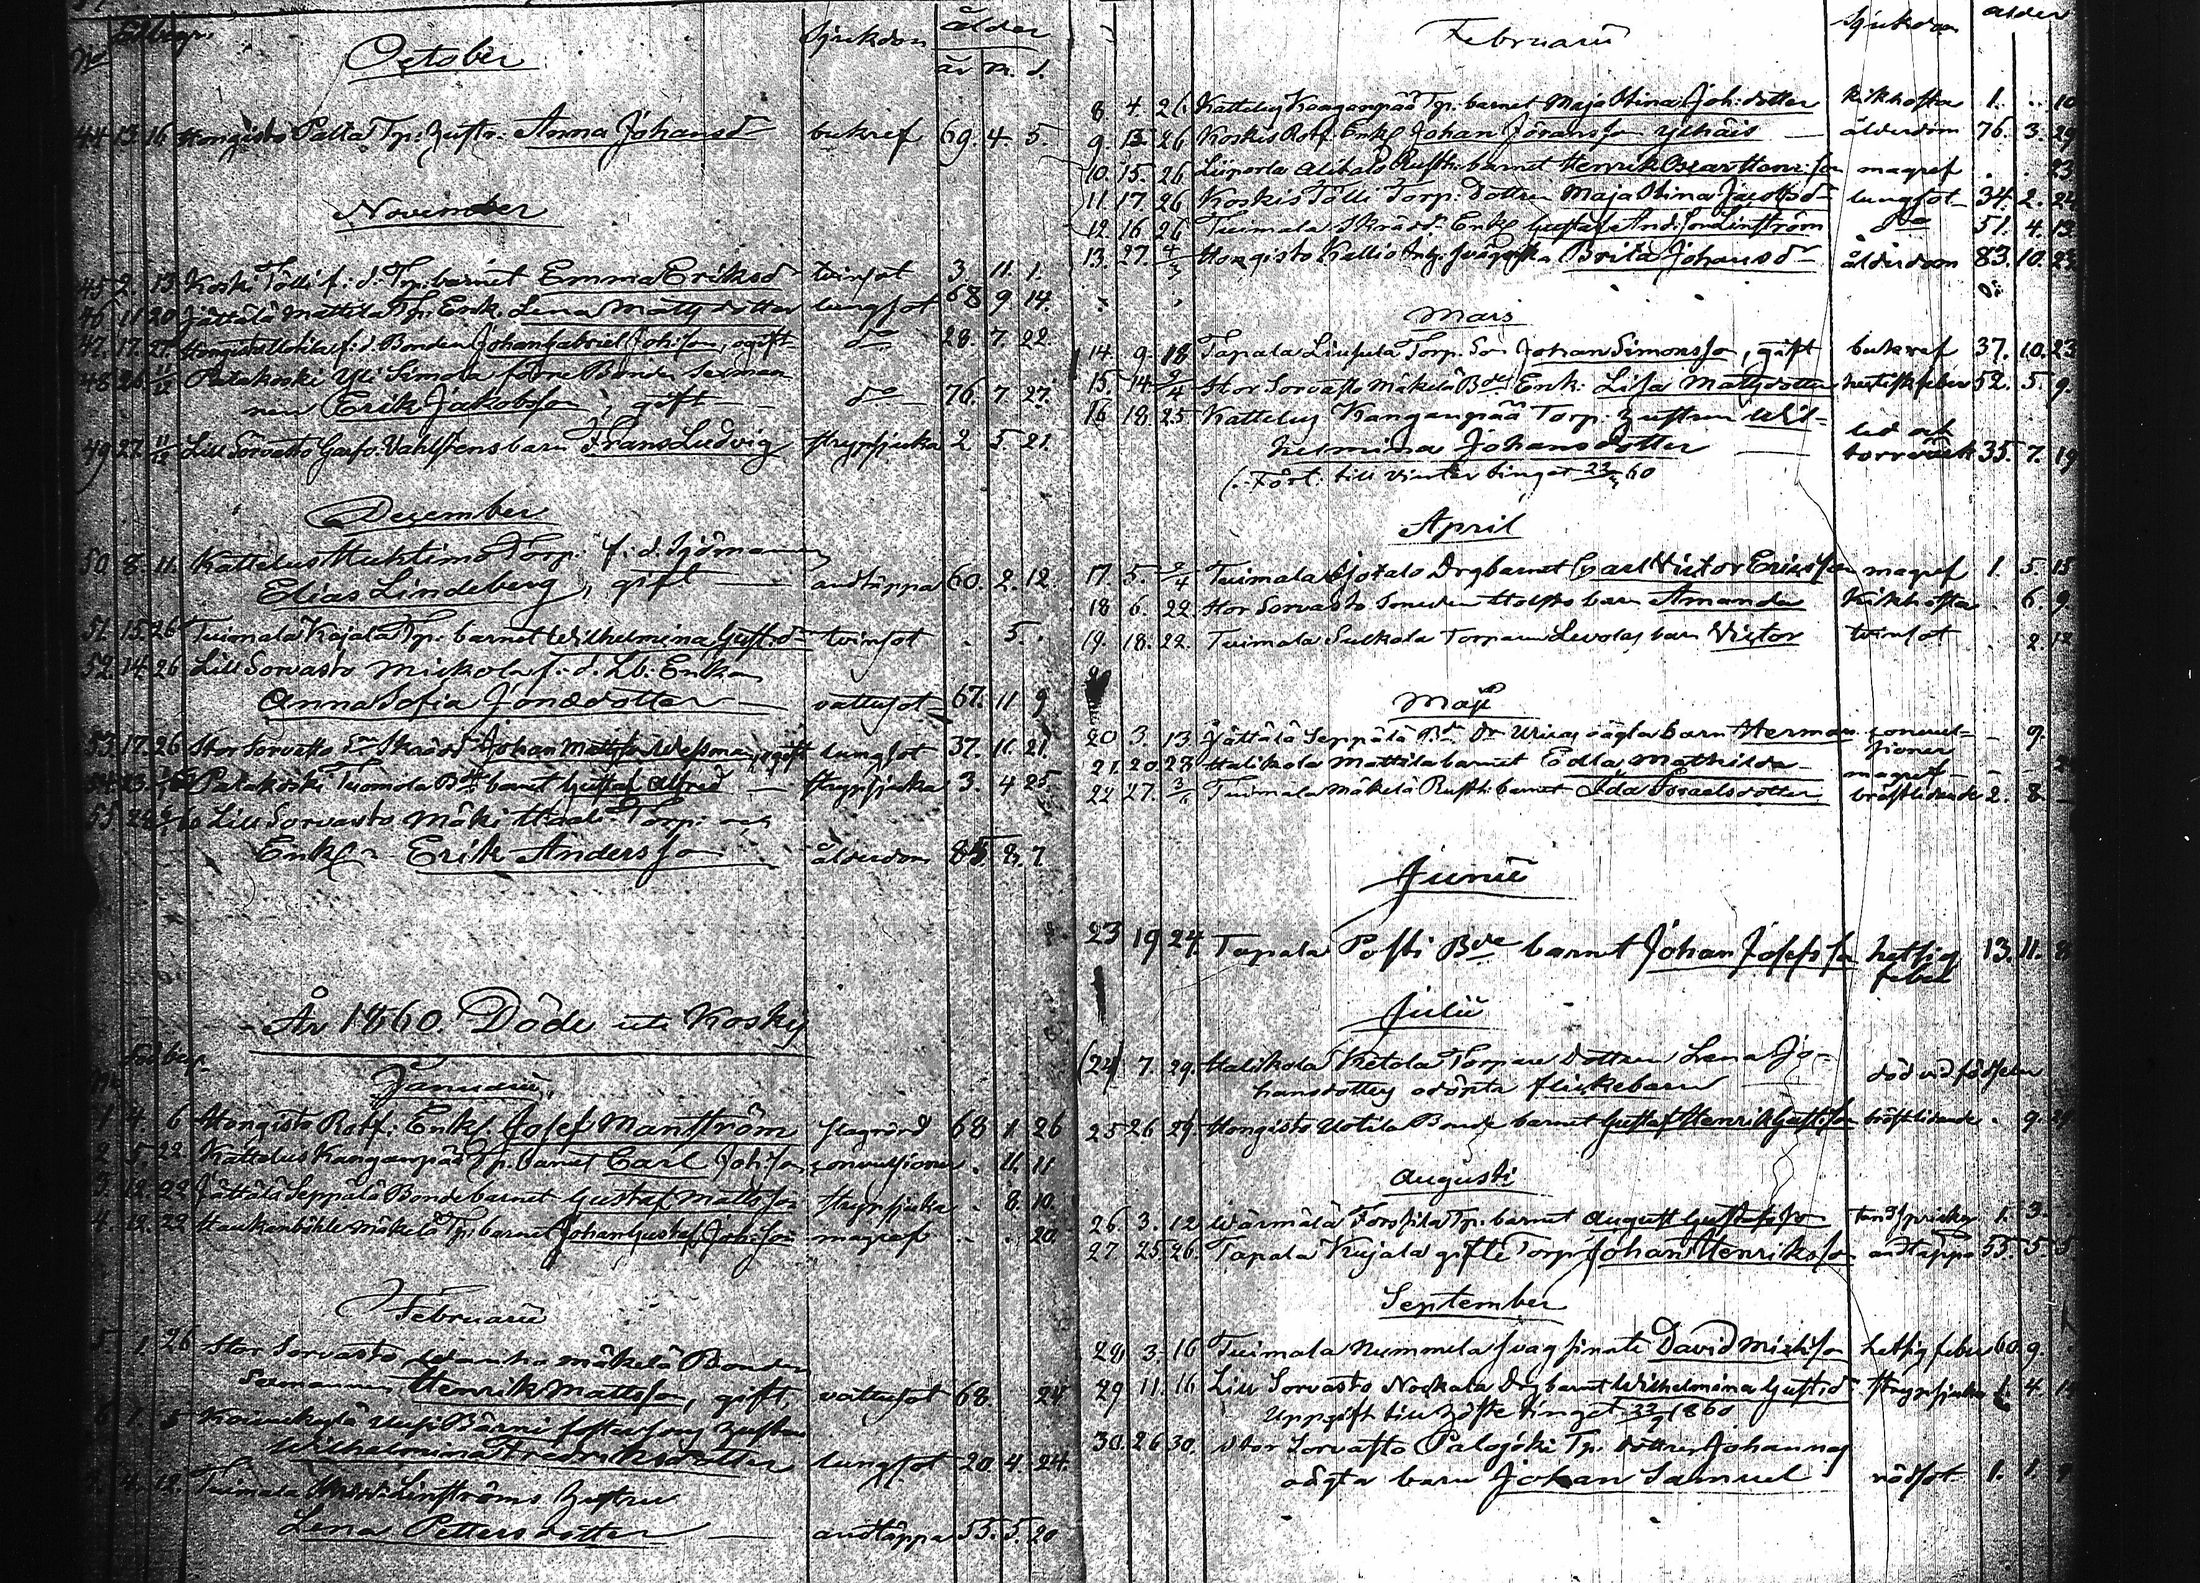 No död begr. October Sjukdom ålder
år m. d.
44 13 16 Hongisto Palta Tp: hustr. Anna Johansd bukref 69. 4. 5.
November
45 2. 13. Koski Tölli f: d: Tp: barnet Emma Eriksd tvinsot 3. 11. 1.
46 11 20 Jättälä Mattila Tp: Enk. Lena Matts dotter lungsot 68 9. 14.
47. 17. 27. Hongisto Uotila f: d. Bonden Johan Gabriel Joh:son, ogift do 28. 7. 22
48 26 11/12 Palakoski Yli Simola förre Bonden Sexman
nen Erik Jakobsson, gift do 76. 7 27.
49 27. 11/12 Lill Sorvasto Garfv. Vahlstens barn Frans Ludvig strypsjuka 2 5. 21.
December
50 8. 11. Kattelus Huhtimo Torp: f: d. Sjöman
Elias Lindeberg, gift andtäppa 60. 2. 12
51. 15. 26 Tuimala Kajala Tp: barnet Wilhelmina Gust:d tvinsot . 5. .
52. 14. 26 Lill Sorvasto Mickola f: d. Lb. Enkan
Anna Sofia Jonasdotter vattusot 67. 11 9
53. 17. 26 Stor Sorvasto Skrädd Johan Mattsson Wessman, ogift lungsot 37. 11. 21.
54. 23. Palakoski Tuomola Bde barnet Gustaf Alfred strypsjuka 3. 4 25.
55 Lill Sorvasto Mäki Torp:
Enkl: Erik Andersson ålderdom 85. 8. 7.
År 1860. Döde uti Koskis
No död begr.
Januarii
1 4. 6 Hongisto Rotf: Enkl. Josef Manström slagrörd 68 11 26
2 5. 22. Kattelus Kanganpää Tp. barnet Carl Joh:son convulsioner . 11. 11
3. 12. 22 Jättälä Seppälä Bonde barnet Gustaf Mattsson strypsjuka . 8. 10.
4. 12. 22 Haukankühle Mäkelä Tp: barnet Johan Gustaf Joh:son magref . . 20.
Februarii
5. 1. 26 Stor Sorvasto Wanha Mäkelä Bonden
Sexmannen Henrik Mattsson, gift, vattusot 68. 24
6 1. 5 Koivukylä Uusi Bärni hustrun
Wilhelmina Fredriksdotter lungsot 20. 4. 24.
7. 4. 12. Tuimala Linströms hustru
Lena Pettersdotter andtäppa 55. 5. 20
Februarii Sjukdom ålder
8 4. 26. Kattelus Kanganpää Tp. barnet Maja Stina Joh:dotter kikhosta 1. . 10
9. 13. 26 Koskis Rotf. Enkl Johan Göransson Ychäis ålderdom 76. 3. 29
10. 15. 26 Liipola Alitalo Rusth: barnet Henrik Oscar Henr:son magref . . 23
11. 17. 26 Koskis Tölli Torp: Dottren Maja Stina Jacobsd lungsot 34. 2. 24
12. 16 26 Tuimala Skrädd. Enkl Gustaf And:son Linström do 51. 4. 12
13. 27. 4/3 Hongisto Kallio Brita Johansd ålderdom 83. 10. 23
Mars
14. 9. 18 Tapala Liusula Torp. Son Johan Simonsson, gift bukref 37. 10. 23
15. 14 9/4 Stor Sorvasto Mäkelä Bde Enk: Lisa Mattsdotter hectisk feber 52. 5. 9.
16 18. 25 Kattelus Kanganpää Torp: hustrun Wil-
helmina Johansdotter led och torrvärk 35. 7. 19
(Fört: till vinter tinget 23/3 60
April
17. 5. 9/4 Tuimala Isotalo Drg barnet Carl Victor Ericsson magref 1. 5. 15
18 6. 22. Stor Sorvasto Smeden Holsts barn Amanda Kikhosta . 6. 9.
19. 18. 22. Tuimala Sulkola Torparen Levolas barn Victor tvinsot . 2. 12
Maji
20 3. 13. Jättälä Seppälä Bde Dr Ulricas oägta barn Herman convul-
sioner - 9.
21. 20. 28 Halikola Mattila barnet Edla Mathilda magref - - 2
22 27. 3/6 Tuimala Mäkelä Rusth: barnet Ida Israelsdotter bröstlidande 2. 8. -
Junii
23 19 24. Tapala Posti Bde barnet Johan Josefsson hetsig
feber 13. 11. 8
Julii
(24) 7. 29. Halikola Ketola Torpare Dottren Lena Jo-
hansdotters odöpta flickebarn död vid födseln
25 26 29 Hongisto Uotila Bonde barnet Gustaf Henrik Gustsson bröstlidande . 9. 21
Augusti
26. 3. 12 Wärmälä Forssila Tp: barnet August Gustafsson tandsprickn 1. 3.
27. 25. 26. Tapala Kujala gifte Torp: Johan Henriksson andtäppa 55. 5. 5
September
28 3. 16 Tuimala Nummela svagsinte David Michsson hetsig feber 60. 9.
29 11. 16 Lill Sorvasto Nockala Drg barnet Wilhelmina Gust:d Strypsjuka 4.
Uppgift till höste tinget 22/9 1860
30. 26 30. Stor Sorvasto Palojoki Tp: dottren Johannas
oägta barn Johan Samuel rödsot 1. 1.